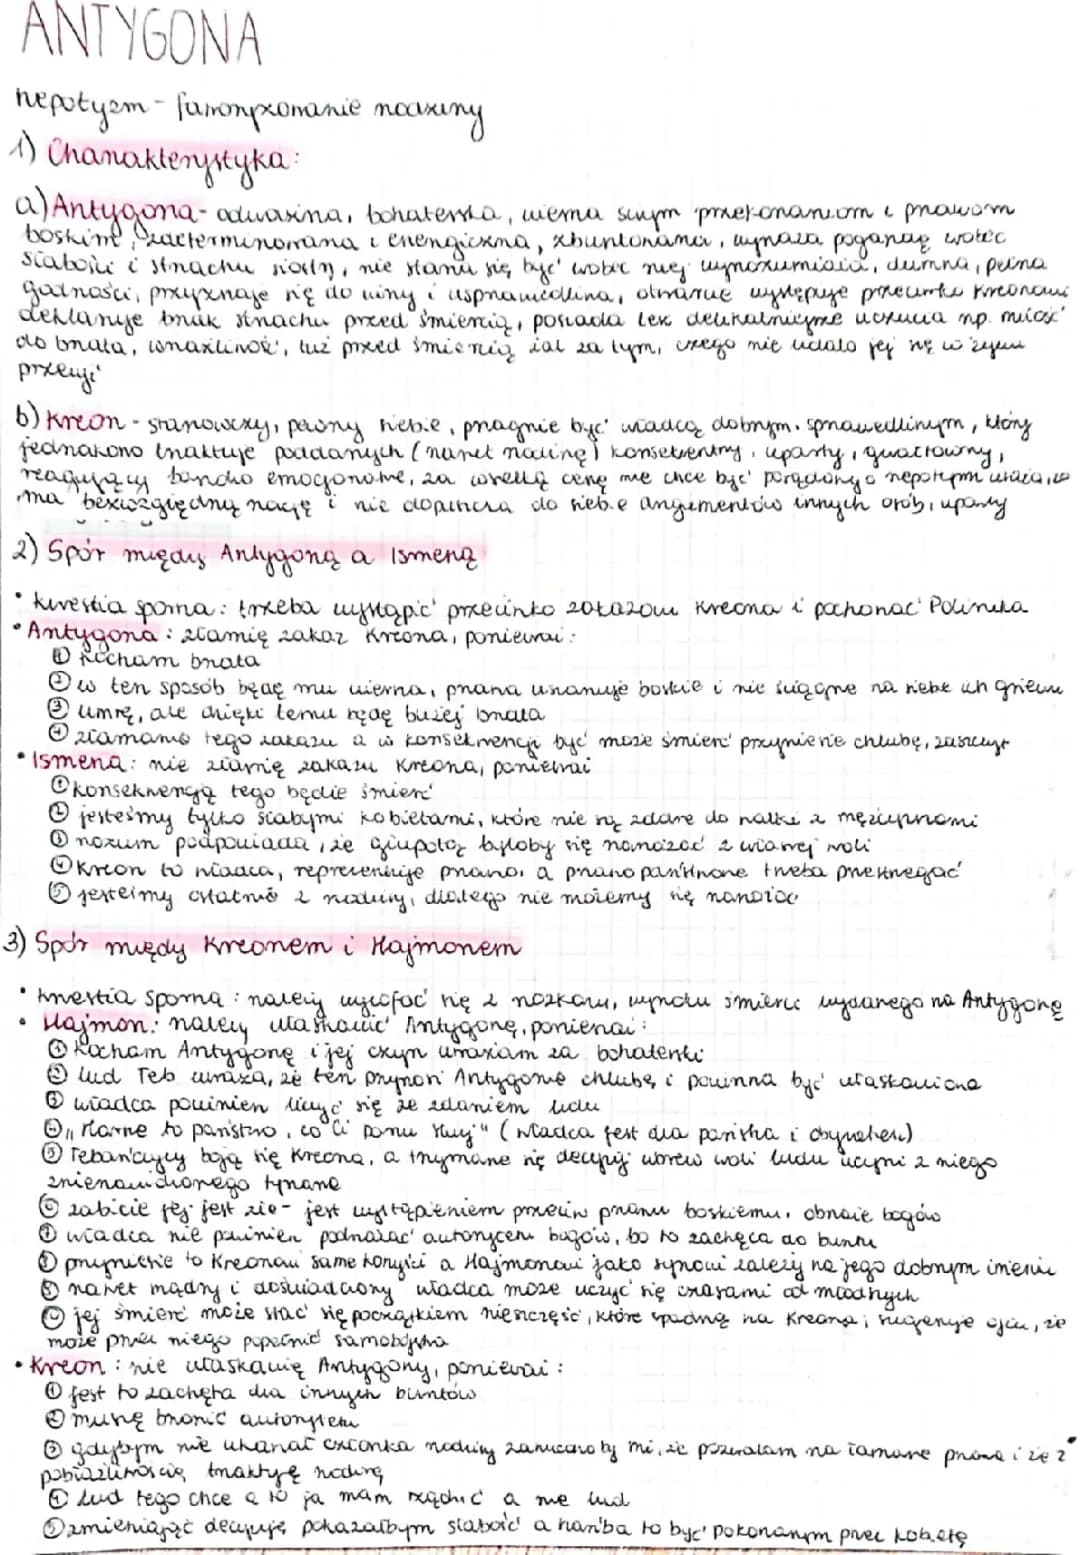 ANTYGONA
nepotyzm - faworyzowanie rodziny
1) Charakterystyka:
a) Antygona - odważna, bohaterska, wierna swym przekonaniom i prawom
boskim, zdeterminowana i energiczna, zbuntowana, wyraża pogardę wobec
słabości i strachu siostry, nie stara się być wobec niej wyrozumiała, dumna, pełna
godności, przyznaje się do winy i usprawiedliwia, otwarcie występuje przeciwko Kreonowi
deklaruje brak strachu przed śmiercią, posiada też delikatniejsze uczucia np. miłość
do brata, wrażliwość, tuż przed śmiercią żal za tym, czego nie udało jej się w życiu
przeżyć
b) Kreon - stanowczy, pewny siebie, pragnie być władcą dobrym, sprawiedliwym, który
jednakowo traktuje poddanych (nawet rodzinę) konsekwentny, uparty, gwałtowny,
reagujący bardzo emocjonalnie, za wszelką cenę nie chce być posądzony o nepotyzm uważa, że
ma bezwzględną rację i nie dopuszcza do siebie argumentów innych osób, uparty
2) Spór między Antygoną a Ismeną
• kwestia sporna: trzeba wystąpić przeciwko zakazowi Kreona i pochować Polinika
• Antygona: złamię zakaz Kreona, ponieważ:
① kocham brata
② w ten sposób będę mu wierna, prawa uszanuję boskie i nie ściągnę na siebie ich gniewu
③ umrę, ale dzięki temu będę bliżej brata
④ złamanie tego zakazu a w konsekwencji być może śmierć przyniesie chlubę, zaszczyt
• Ismena: nie złamię zakazu Kreona, ponieważ
① konsekwencją tego będzie śmierć
② jesteśmy tylko słabymi kobietami, które nie są zdolne do walki z mężczyznami
③ rozum podpowiada, że głupotą byłoby się narażać z własnej woli
④ Kreon to władca, reprezentuje prawo, a prawo państwowe trzeba przestrzegać
⑤ jesteśmy ostatnie z rodziny, dlatego nie możemy się narażać
3) Spór między Kreonem i Hajmonem
• kwestia sporna: należy wycofać się z rozkazu, wyroku śmierci wydanego na Antygonę
• Hajmon: należy ułaskawić Antygonę, ponieważ:
① Kocham Antygonę i jej czyn uważam za bohaterski
② lud Teb uważa, że ten przynosi Antygonie chlubę i powinna być ułaskawiona
③ władca powinien liczyć się ze zdaniem ludu
④ "Marne to państwo, co ci panu służy" (władca jest dla państwa i obywateli)
⑤ Tebańczycy boją się Kreona, a trzymanie się decyzji wbrew woli ludu uczyni z niego
znienawidzonego tyrana
⑥ zabicie jej jest złe - jest wystąpieniem przeciw prawu boskiemu, obrazie bogów
⑦ władca nie powinien podważać autorytetu bogów, bo to zachęca do buntu
⑧ przyniesie to Kreonowi same korzyści a Hajmonowi jako synowi zależy na jego dobrym imieniu
⑨ nawet mądry i doświadczony władca może uczyć się czasami od młodych
⑩ jej śmierć może stać się początkiem nieszczęść, które spadną na Kreona; sugeruje ojcu, że
może przez niego popełnić samobójstwo
• Kreon: nie ułaskawię Antygony, ponieważ:
① jest to zachęta dla innych buntów
② muszę bronić autorytetu
③ gdybym nie ukarał członka rodziny zarzucano by mi, że pozwalam na łamanie prawa i że z
pobłażliwością traktuję rodzinę
④ lud tego chce a to ja mam rządzić a nie lud
⑤ zmieniając decyzję pokazałbym słabość a hańba to być pokonanym przez kobietę